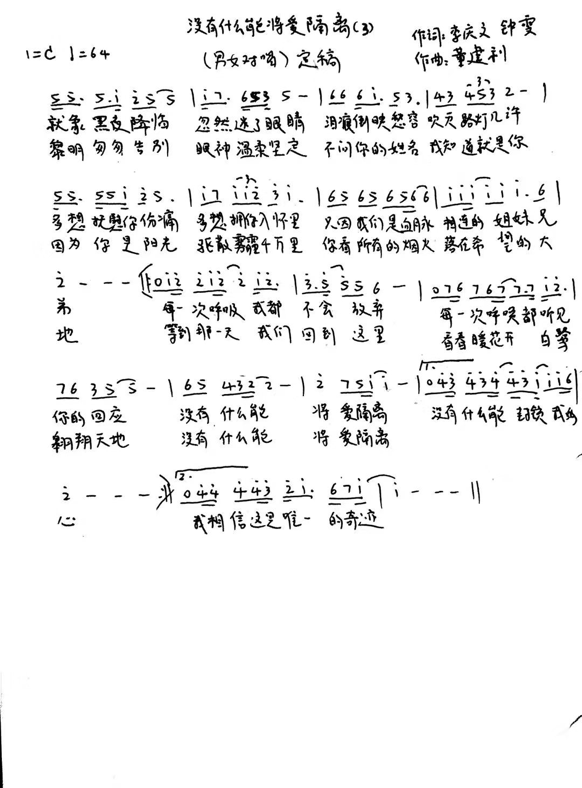 没有什么能将爱隔离(3)
(男女对唱)定稿
作词:李庆文 钟雯
作曲:董建利
1=C ♩=64
5 5. 5. i 2 5 5 | i 7. 6 5 3 5 - | 6 6 6 i. 5 3. | 4 3 4 5 3 2 - |
就象 黑夜降临 忽然迷了眼睛 泪痕倒映愁容 吹灭路灯几许
黎明匆匆告别 眼神温柔坚定 不问你的姓名 我知道就是你
5 5. 5 5 i 2 5. | i 7 i i 2 3 i. | 6 5 6 5 6 5 6 6 | i i i i i i. 6 |
多想抚慰你伤痛 多想拥你入怀里 只因我们是血脉 相连的姐妹兄
因为你是阳光 驱散雾霾千万里 你看所有的烟火 落在希望的大
2 - - - |: 0 i 2 2 i 2 2 i 2. | 3. 5 5 5 6 - | 0 7 6 7 6 7 7. 7 i 2. |
弟 每一次呼吸 我都不会放弃 每一次呼唤都听见
地 等到那一天 我们回到这里 看春暖花开 白鸽
7 6 3 5 5 - | 6 5 4 3 2 2 - | 2 7 5 i i - | 0 4 3 4 3 4 4 3 i i i 6 |
你的回应 没有什么能 将爱隔离 没有什么能 封锁我的
翱翔天地 没有什么能 将爱隔离
2 - - - :| 2. 0 4 4 4 4 3 2 i. 6 7 i | i - - - ||
心 我相信这是唯一的奇迹